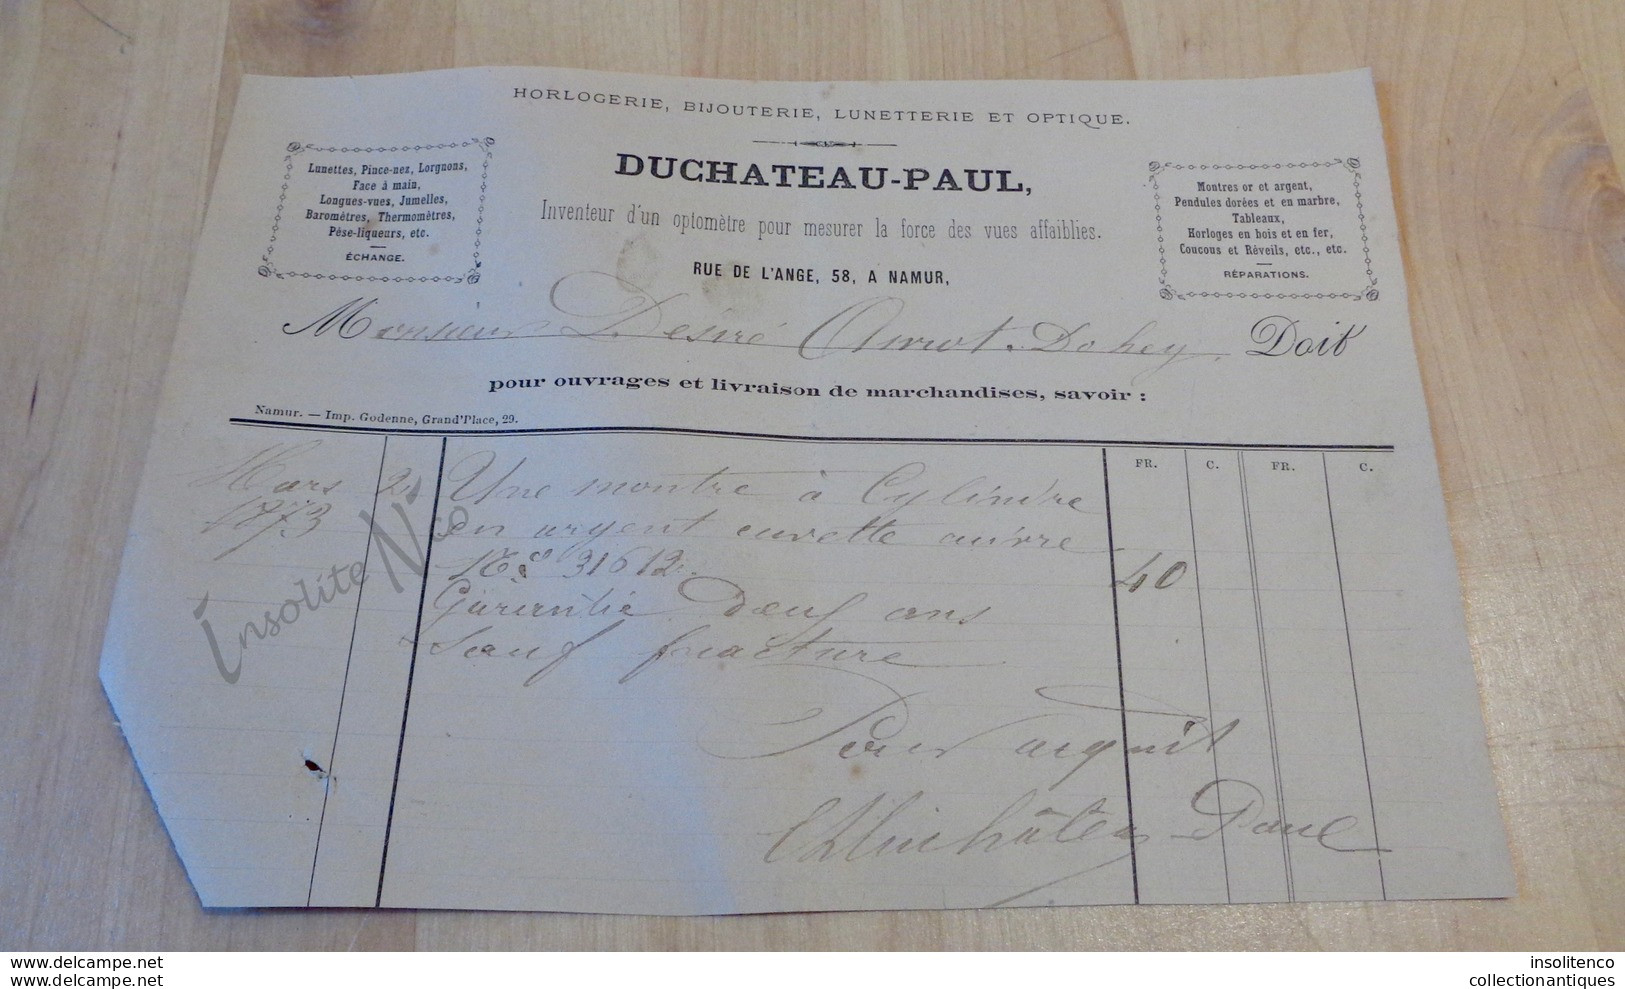 HORLOGERIE, BIJOUTERIE, LUNETTERIE ET OPTIQUE.
DUCHATEAU-PAUL,
Inventeur d'un optomètre pour mesurer la force des vues affaiblies.
RUE DE L'ANGE, 58, A NAMUR,
Lunettes, Pince-nez, Lorgnons,
Face à main,
Longues-vues, Jumelles,
Baromètres, Thermomètres,
Pèse-liqueurs, etc.
ÉCHANGE.
Montres or et argent,
Pendules dorées et en marbre,
Tableaux,
Horloges en bois et en fer,
Coucous et Réveils, etc., etc.
RÉPARATIONS.
Monsieur Désiré Dohey, Doit
pour ouvrages et livraison de marchandises, savoir :
Namur. — Imp. Godenne, Grand'Place, 29.
FR. C. FR. C.
Mars 2 Une montre à Cylindre
1873 en argent cuvette cuivre
31612. 40
Garantie deux ans
Sauf fracture
Pour acquit
Duchâteau Paul
insolite Nico
www.delcampe.net
your collector marketplace
insolitenco
collectionantiques